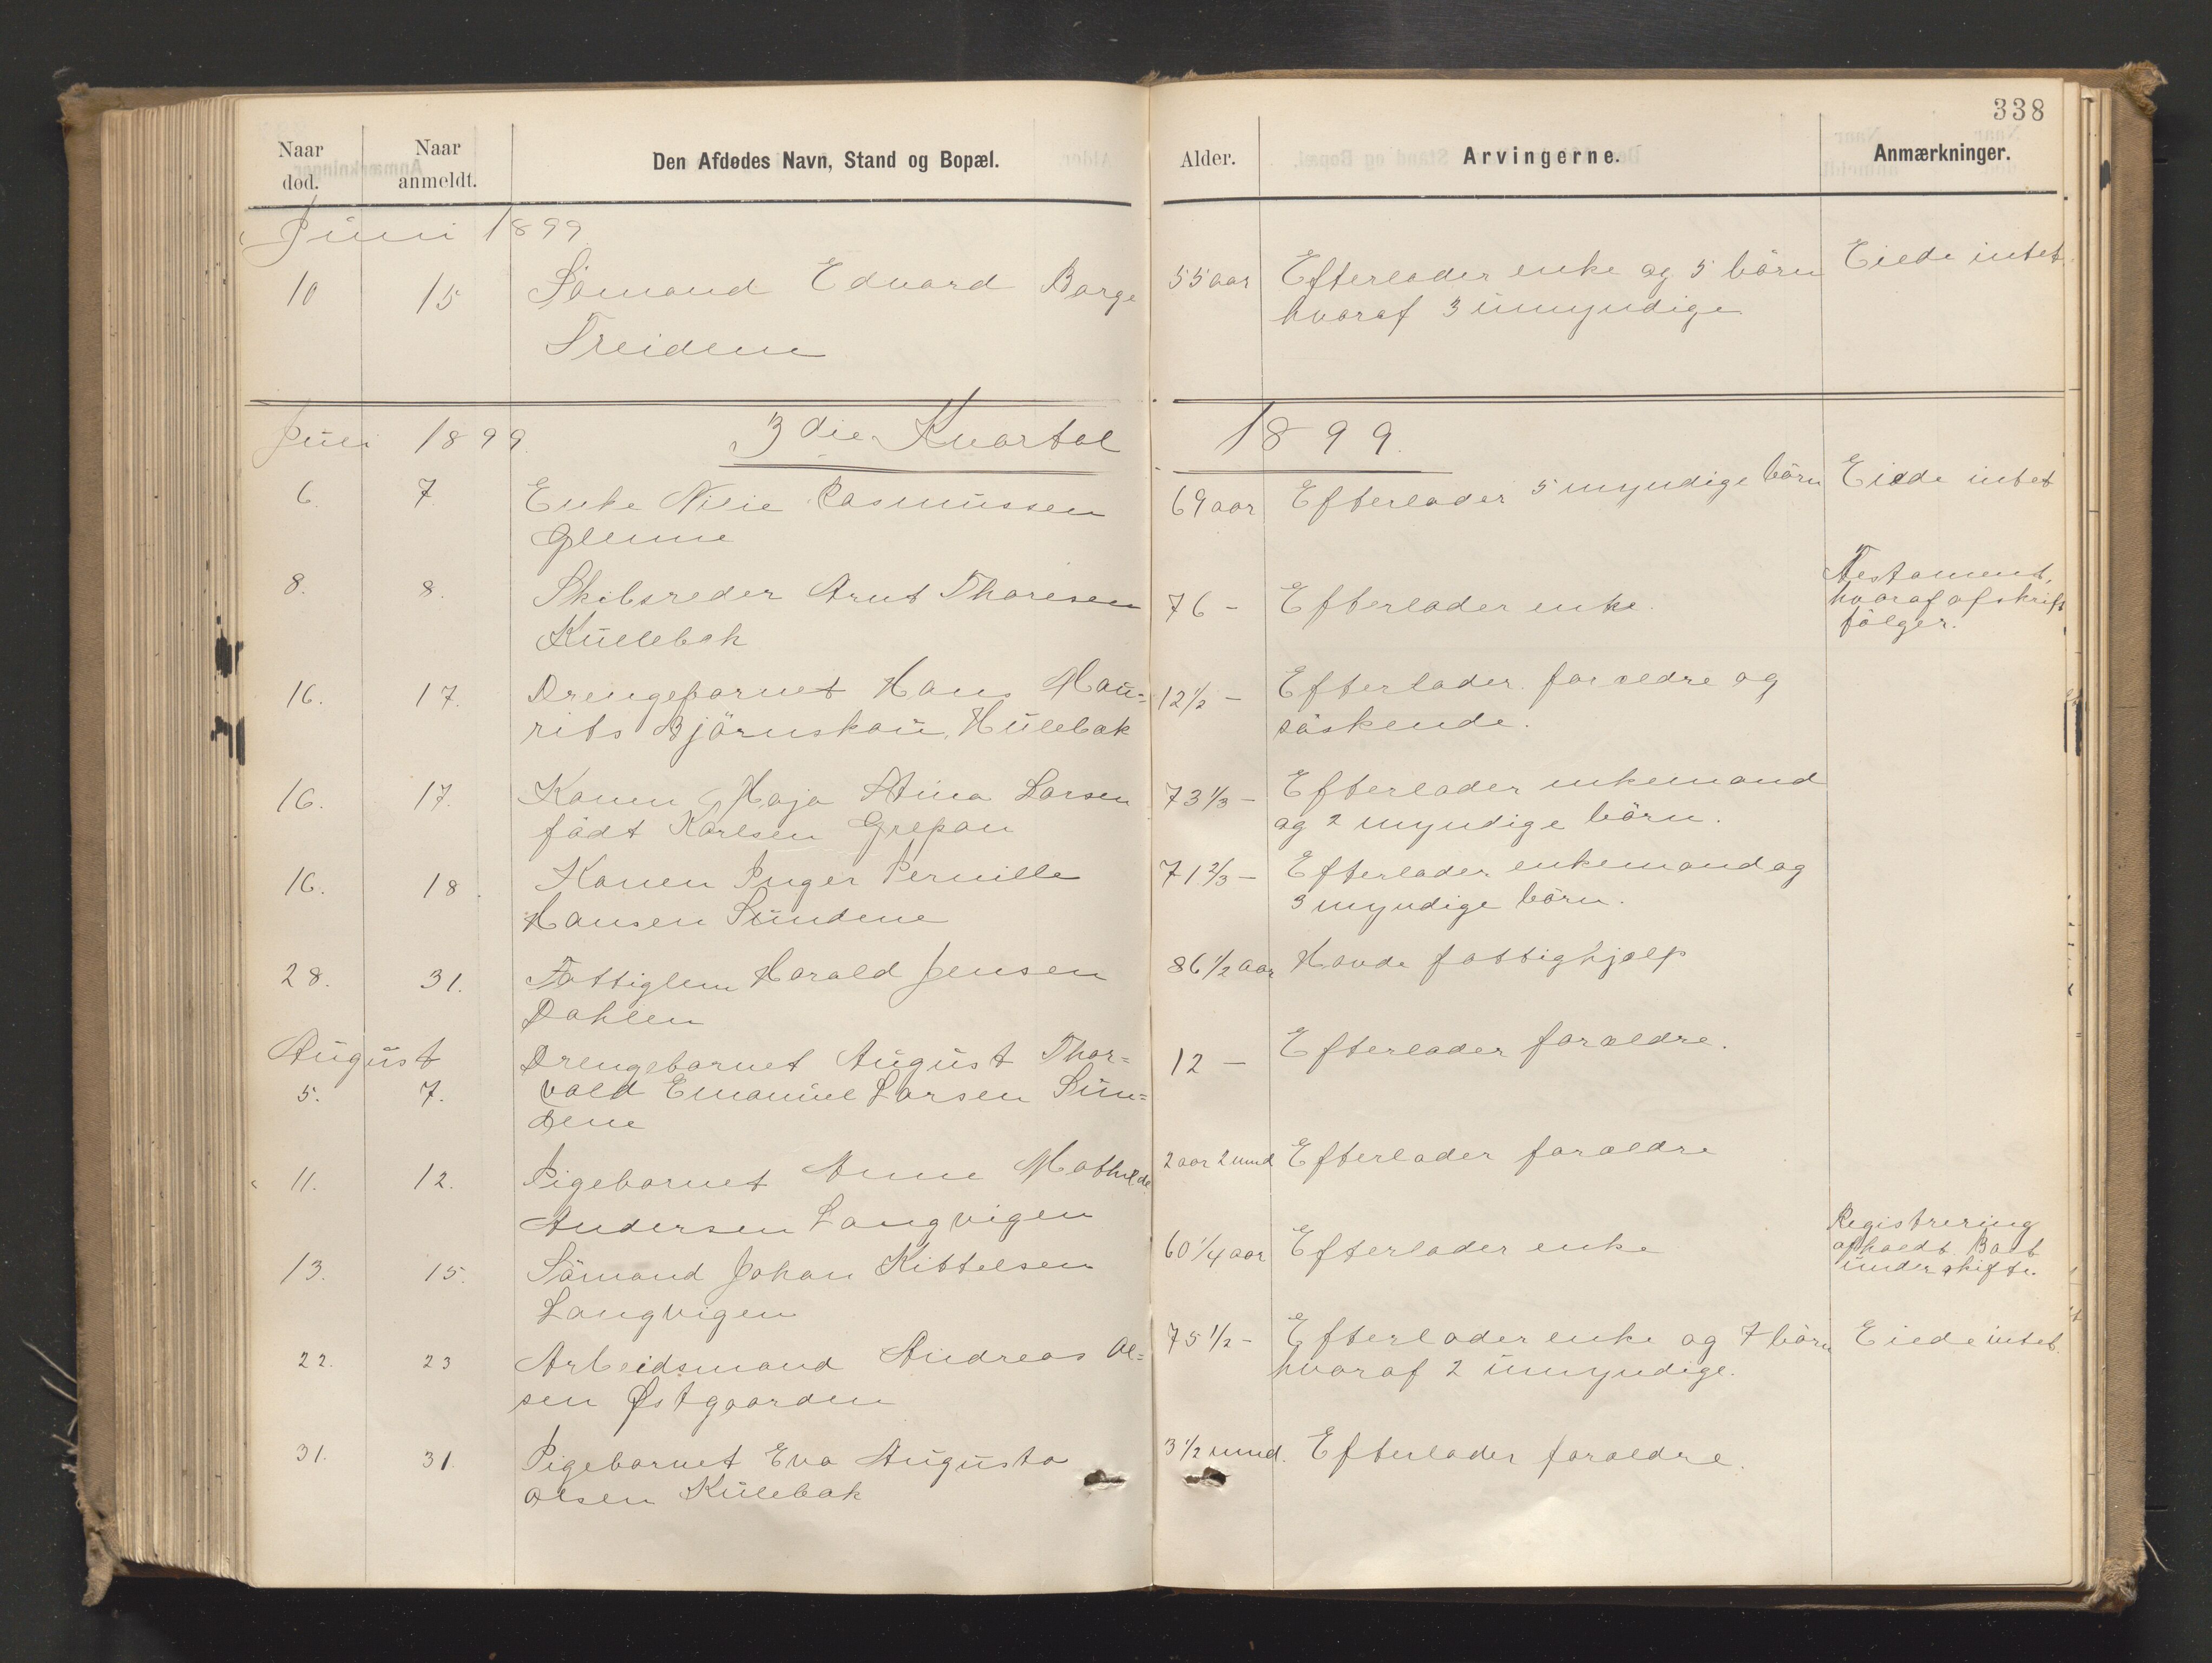 338
Naar død. Naar anmeldt. Den Afdødes Navn, Stand og Bopæl. Alder. Arvingerne. Anmærkninger.
Juni 1899
10 15 Sömand Eduard Barge 55 aar Efterlader enke og 5 börn Eiede intet.
Treidene hvoraf 3 umyndige
Juli 1899. 3die Kvartal 1899.
6. 7. Enke Nilie Rasmussen 69 aar Efterlader 5 myndige börn Eiede intet
Glenne
8. 8. Skibsreder Arnt Thoresen 76 - Efterlader enke. Testament,
Kullebak hvoraf afskrift
fölger.
16. 17. Drengebarnet Hans Mau= 12 1/2 - Efterlader forældre og
rits Björnskau, Hulebak söskende.
16. 17. Konen Maja Stina Larsen 73 1/3 - Efterlader enkemand
födt Karlsen Grepan og 2 myndige börn.
16. 18 Konen Inger Pernille 71 2/3 - Efterlader enkemand og
Hansen Sundene 3 myndige börn.
28. 31. Fattiglem Harald Jensen 86 1/2 aar Havde fattighjælp
Dahlen
August Drengebarnet August Thor= 12 - Efterlader forældre.
5. 7. vald Emanuel Larsen Sun=
dene
11. 12. Pigebarnet Anne Mathilde 2 aar 2 mnd Efterlader forældre
Andersen Langvigen
13. 15. Sömand Johan Kittelsen 60 1/4 aar Efterlader enke Registrering
Langvigen afholdt. Boet
under skifte.
22. 23 Arbeidsmand Andreas Ol= 75 1/2 - Efterlader enke og 7 börn Eiede intet.
sen Østgaarden hvoraf 2 umyndige.
31. 31. Pigebarnet Eva Augusta 3 1/2 mnd. Efterlader forældre.
Olsen Kulebak